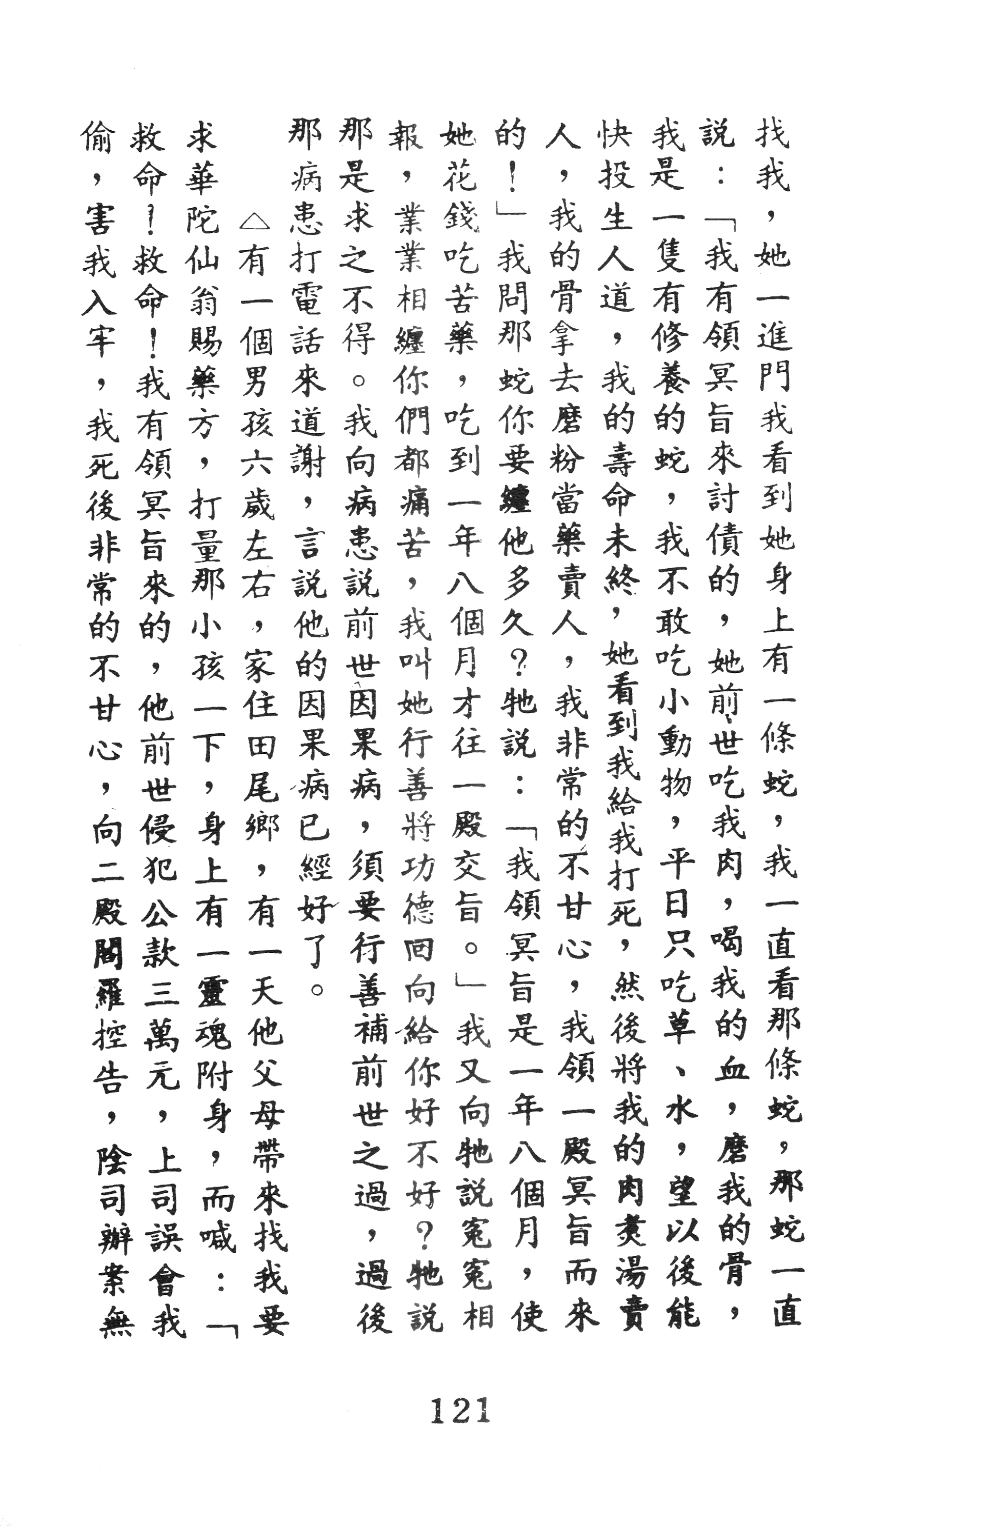 找我，她一進門我看到她身上有一條蛇，我一直看那條蛇，那蛇一直
說：「我有領冥旨來討債的，她前世吃我肉，喝我的血，磨我的骨，
我是一隻有修養的蛇，我不敢吃小動物，平日只吃草、水，望以後能
快投生人道，我的壽命未終，她看到我給我打死，然後將我的肉煑湯賣
人，我的骨拿去磨粉當藥賣人，我非常的不甘心，我領一殿冥旨而來
的！」我問那蛇你要纏他多久？牠說：「我領冥旨是一年八個月，使
她花錢吃苦藥，吃到一年八個月才往一殿交旨。」我又向牠說寃寃相
報，業業相纏你們都痛苦，我叫她行善將功德回向給你好不好？牠說
那是求之不得。我向病患說前世因果病，須要行善補前世之過，過後
那病患打電話來道謝，言說他的因果病已經好了。
△有一個男孩六歲左右，家住田尾鄉，有一天他父母帶來找我要
求華陀仙翁賜藥方，打量那小孩一下，身上有一靈魂附身，而喊：「
救命！救命！我有領冥旨來的，他前世侵犯公款三萬元，上司誤會我
偷，害我入牢，我死後非常的不甘心，向二殿閻羅控告，陰司辦案無
121